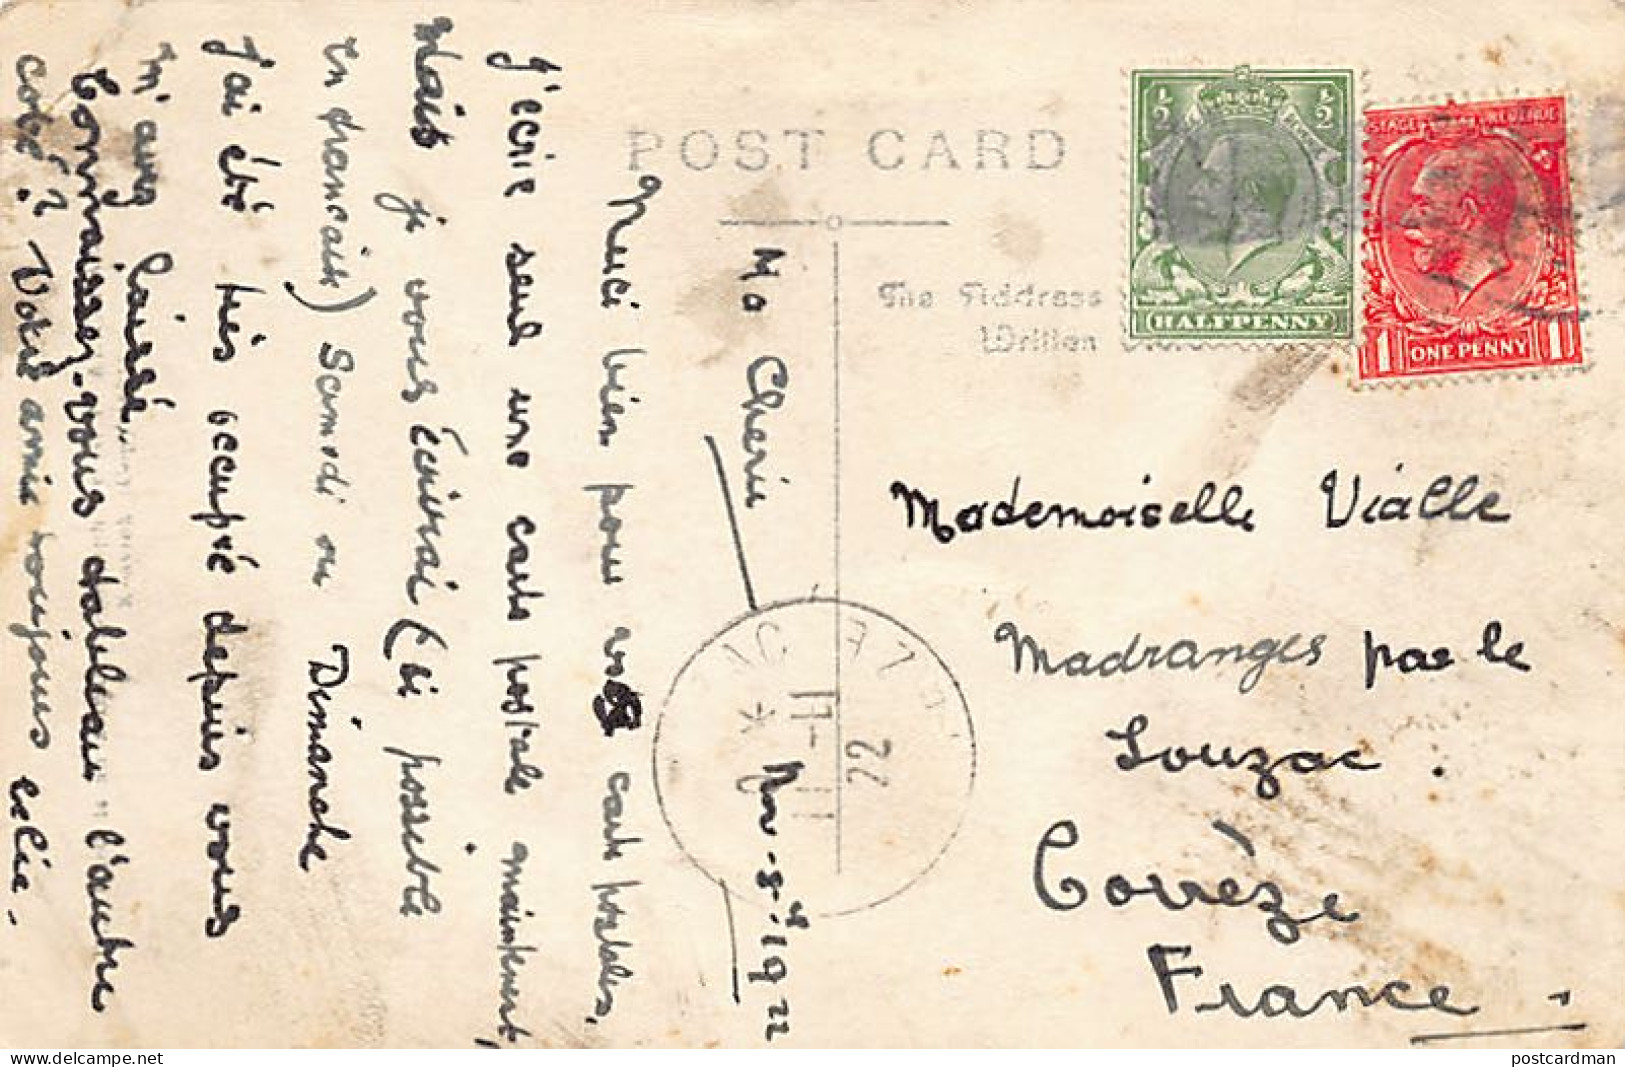 POST CARD
The Address
Written
1/2 1/2
HALFPENNY
POSTAGE REVENUE
1 ONE PENNY 1
Ma Cherie Nov-8-4-1922
Merci bien pour vos carte postales,
J'ecrie seul une carte postale maintenent,
Mais je vous écrirai (si possible
en francais) Samedi ou Dimanche
J'ai été tres occupré depuis vous
m'avez laissé.
Connaissez-vous dableau l'autre
coté? Votre amie toujours Celie.
Mademoiselle Vialle
Madranges par le
Louzac.
Corrèze
France
11-11
22
postcardman